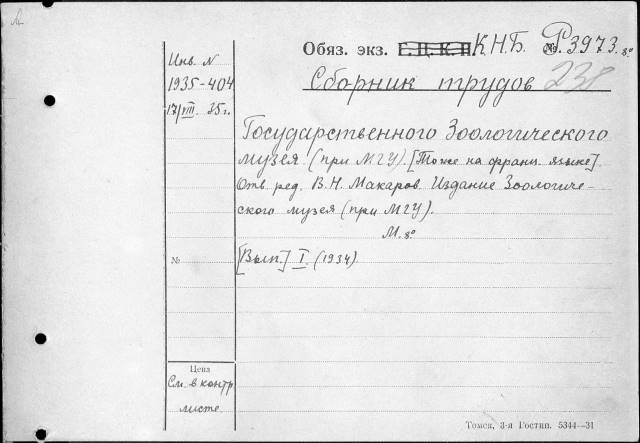 Обяз. экз. Г. Ц. К. П. К.Н.Б. № Р3973. 8°
Инв. N
1935-404
17/VIII 35 г.
Сборник трудов 238
Государственного Зоологического
музея (при МГУ). [То же на франц. языке].
Отв. ред. В.Н. Макаров. Издание Зоологиче-
ского музея (при МГУ).
М. 8°
№
[Вып.] I. (1934).
Цена
См. в контр
листе
Томск, 3-я Гостип. 5344—31